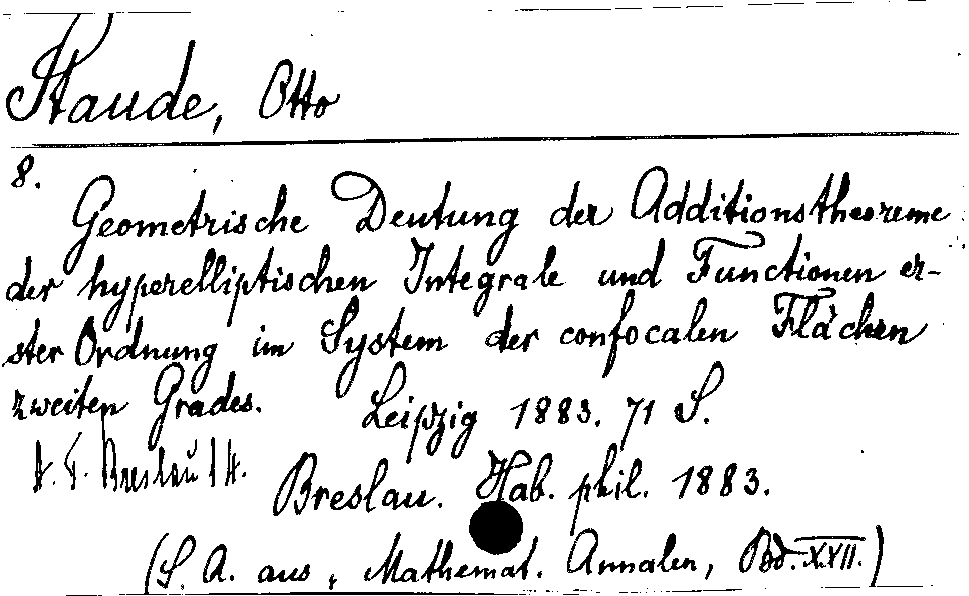 Staude, Otto
8.
Geometrische Deutung der Additionstheoreme
der hyperelliptischen Integrale und Functionen er-
ster Ordnung im System der confocalen Flächen
zweiten Grades. Leipzig 1883. 71 S.
Breslau
Breslau. Hab. phil. 1883.
(S. A. aus, Mathemat. Annalen, Bd. XXII.)